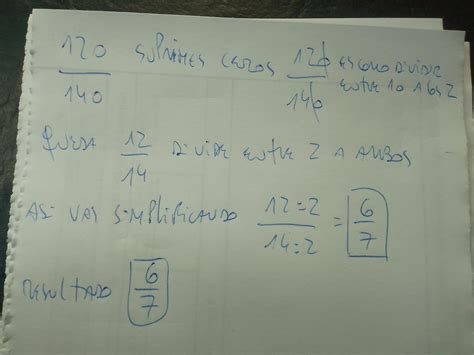 120/140 SUPRIMES CEROS 120/140 ES COMO DIVIDIR
ENTRE 10 A LOS 2
QUEDA 12/14 DIVIDE ENTRE 2 A AMBOS
ASI VAS SIMPLIFICANDO 12:2/14:2 = 6/7
RESULTADO 6/7